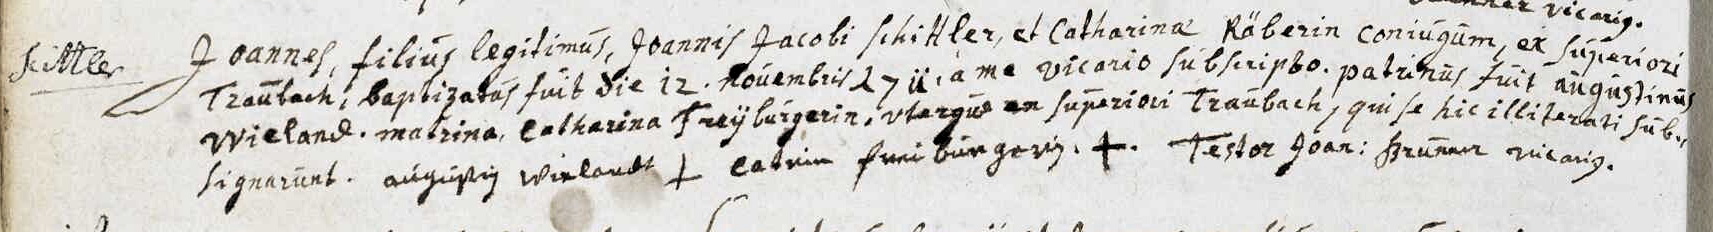 vicarig.
Schittler Joannes, filiüs legitimüs, Joannis Jacobi Schittler, et Catharinæ Räberin coniügüm, ex süperiori
Traübach, baptizatüs füit die 12. Novembris 1711. à me vicario sübscripto. patrinüs füit aügüstinüs
Wieland. matrina, Catharina Freÿbürgerin. vterqüe ex süperiori Traübach, qui se hic illiterati süb-
signarünt. aügüstin Wielandt + Catrin freibürgerin. +. Testor Joan: Brünner vicarig.